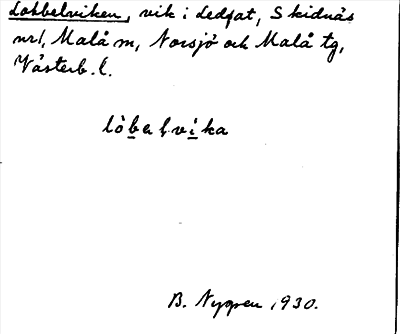 Lobbelviken, vik i Ledfat, Skidnäs
nr1, Malå sn, Norsjö och Malå tg,
Västerb. l.
lòbelvika
B. Nygren 1930.